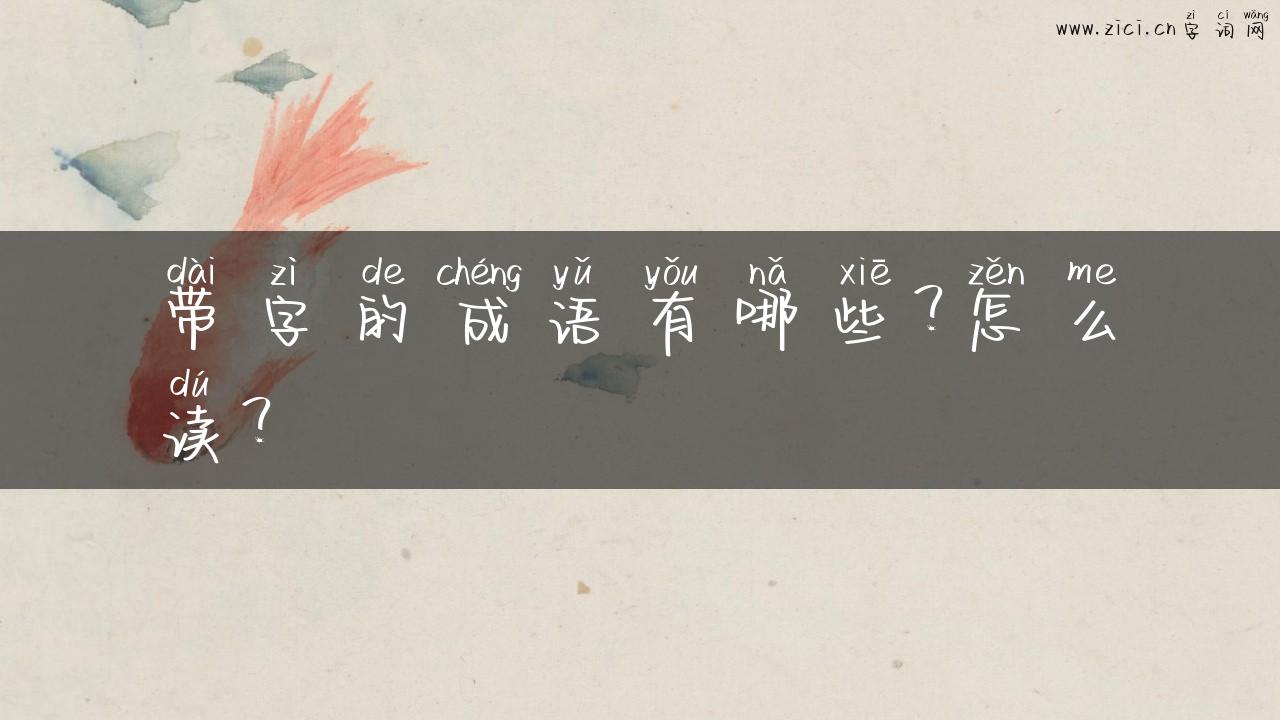 zì cí wǎng
www.zici.cn字词网
dài zì de chéng yǔ yǒu nǎ xiē zěn me
带字的成语有哪些？怎么
dú
读？